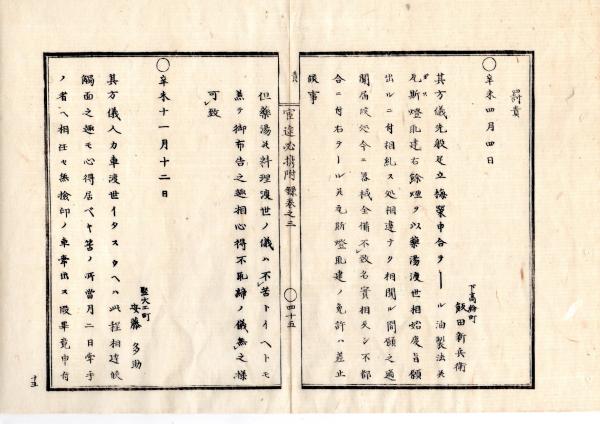 罰責
○辛未四月四日
下高輪町
飯田新兵衛
其方儀先般足立梅榮申合テール油製法并
瓦斯燈取建右餘煙ヲ以藥湯渡世相始度旨願
出ルニ付相糺ス処相違ナク相聞ル間願之通
聞届候処今ニ器械全備不致名實相失シ不都
合ニ付右テール并瓦斯燈取建ノ免許ハ差止
候事
宣達必携附録卷之三
○四十五
但藥湯并料理渡世ノ儀ハ不苦トイヘトモ
兼テ御布告之趣相心得不取締ノ儀無之樣
可致
○辛未十一月十二日
竪大工町
安藤多助
其方儀人力車渡世イタスウヘハ此程相達候
觸面之趣モ心得居ヘキ苦ノ所當月二日牽手
ノ者ヘ相任セ無檢印ノ車牽出ス段畢竟申付